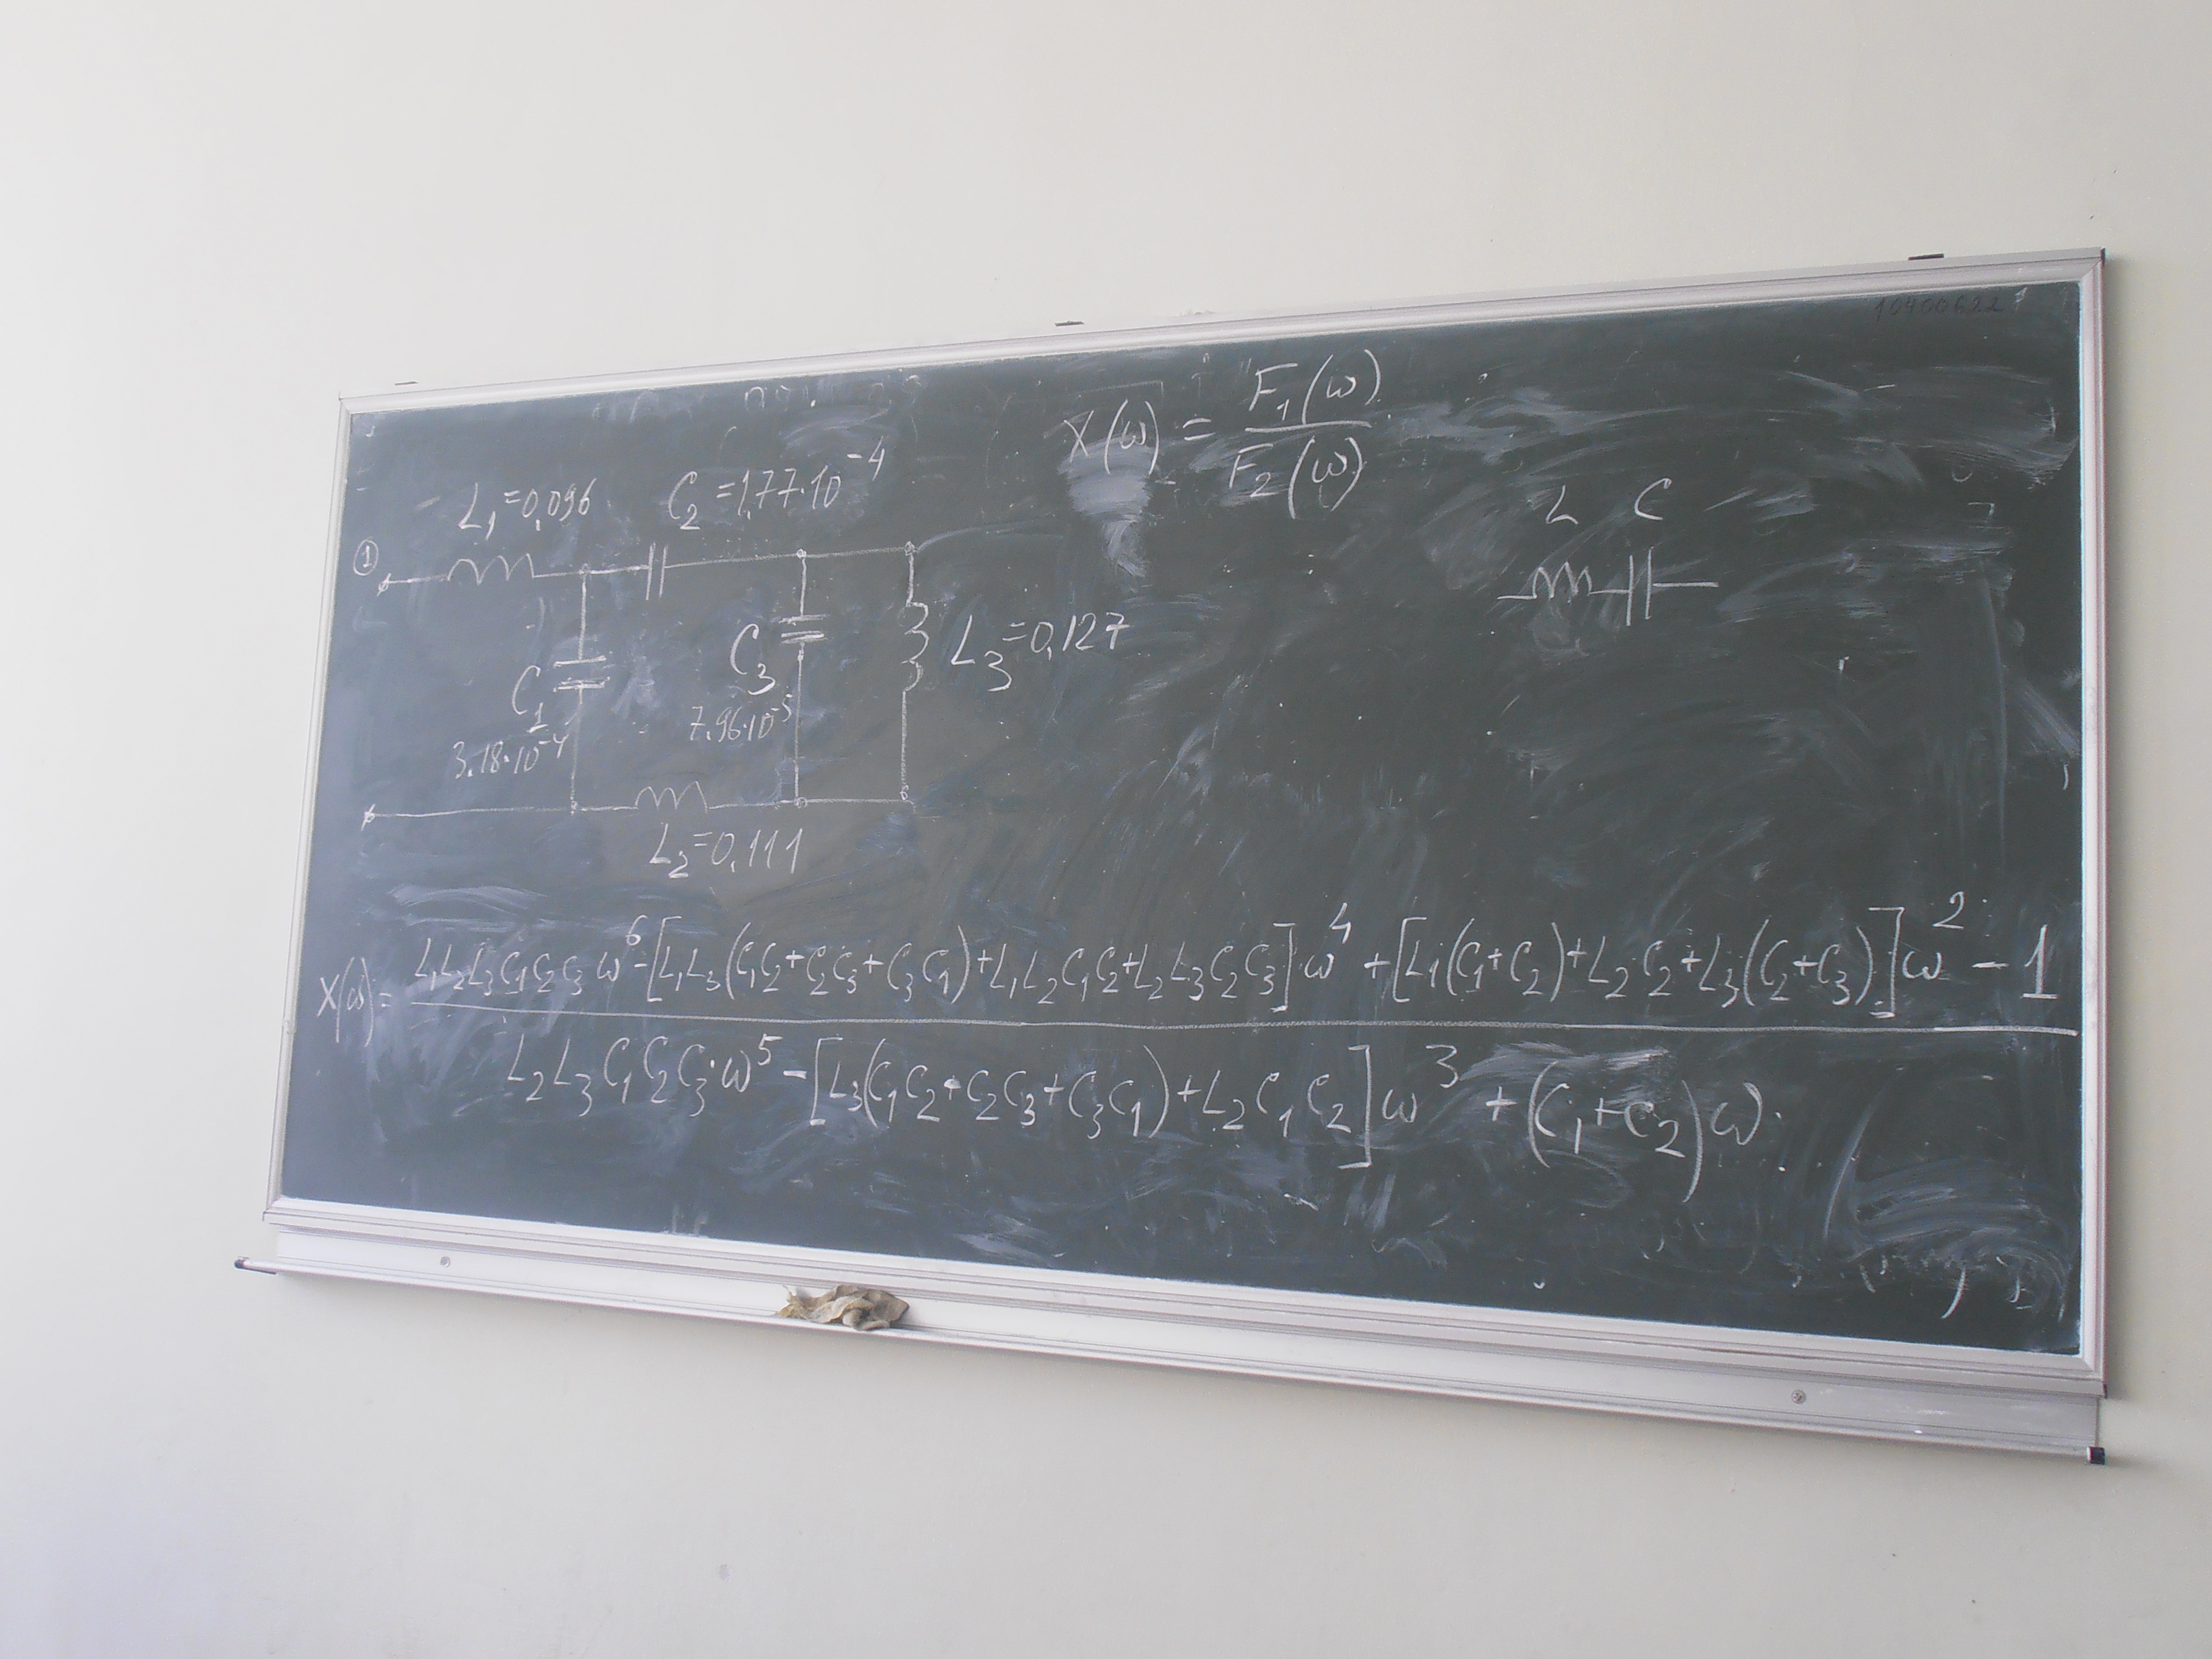 10400622
X(ω) = F₁(ω) / F₂(ω)
L₁=0,096 C₂=1,77·10⁻⁴
L C
①
C₁ C₃ L₃=0,127
3.18·10⁻⁴ 7.96·10⁻⁵
L₂=0,111
X(ω) = L₁L₂L₃C₁C₂C₃ω⁶-[L₁L₃(C₁C₂+C₂C₃+C₃C₁)+L₁L₂C₁C₂+L₂L₃C₂C₃]ω⁴+[L₁(C₁+C₂)+L₂C₂+L₃(C₂+C₃)]ω²-1
L₂L₃C₁C₂C₃·ω⁵-[L₃(C₁C₂+C₂C₃+C₃C₁)+L₂C₁C₂]ω³+(C₁+C₂)ω.